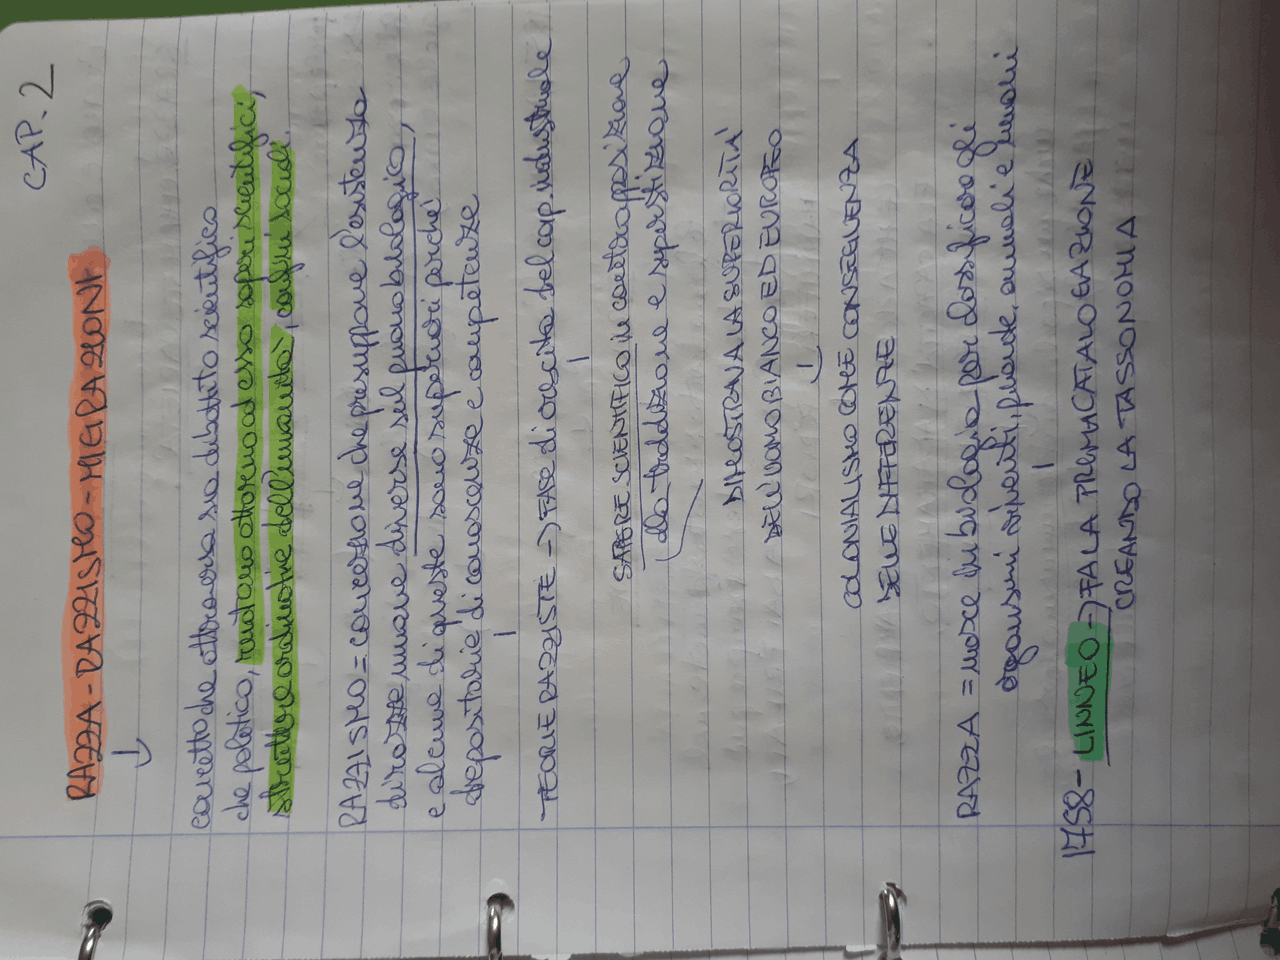 CAP. 2
RAZZA - RAZZISMO - MIGRAZIONI
concetto che attraversa sia dibattito scientifico
che politico, ruotano attorno ad esso saperi scientifici,
strutture ordinative dell'umanità, confini sociali.
RAZZISMO = concezione che presuppone l'esistenza
di razze umane diverse sul piano biologico,
e alcune di queste sono superiori perché
depositarie di conoscenze e competenze
TEORIE RAZZISTE -> FASE di crescita del cap. industriale
SAPERE SCIENTIFICO in contrapposizione
da tradizione e superstizione
DIMOSTRAVA LA SUPERIORITÀ
DELL'UOMO BIANCO ED EUROPEO
COLONIALISMO COME CONSEGUENZA
DELLE DIFFERENZE
RAZZA = nasce in biologia per classificare gli
organismi viventi, piante, animali e umani
1758 - LINNEO -> FA LA PRIMA CATALOGAZIONE
CREANDO LA TASSONOMIA